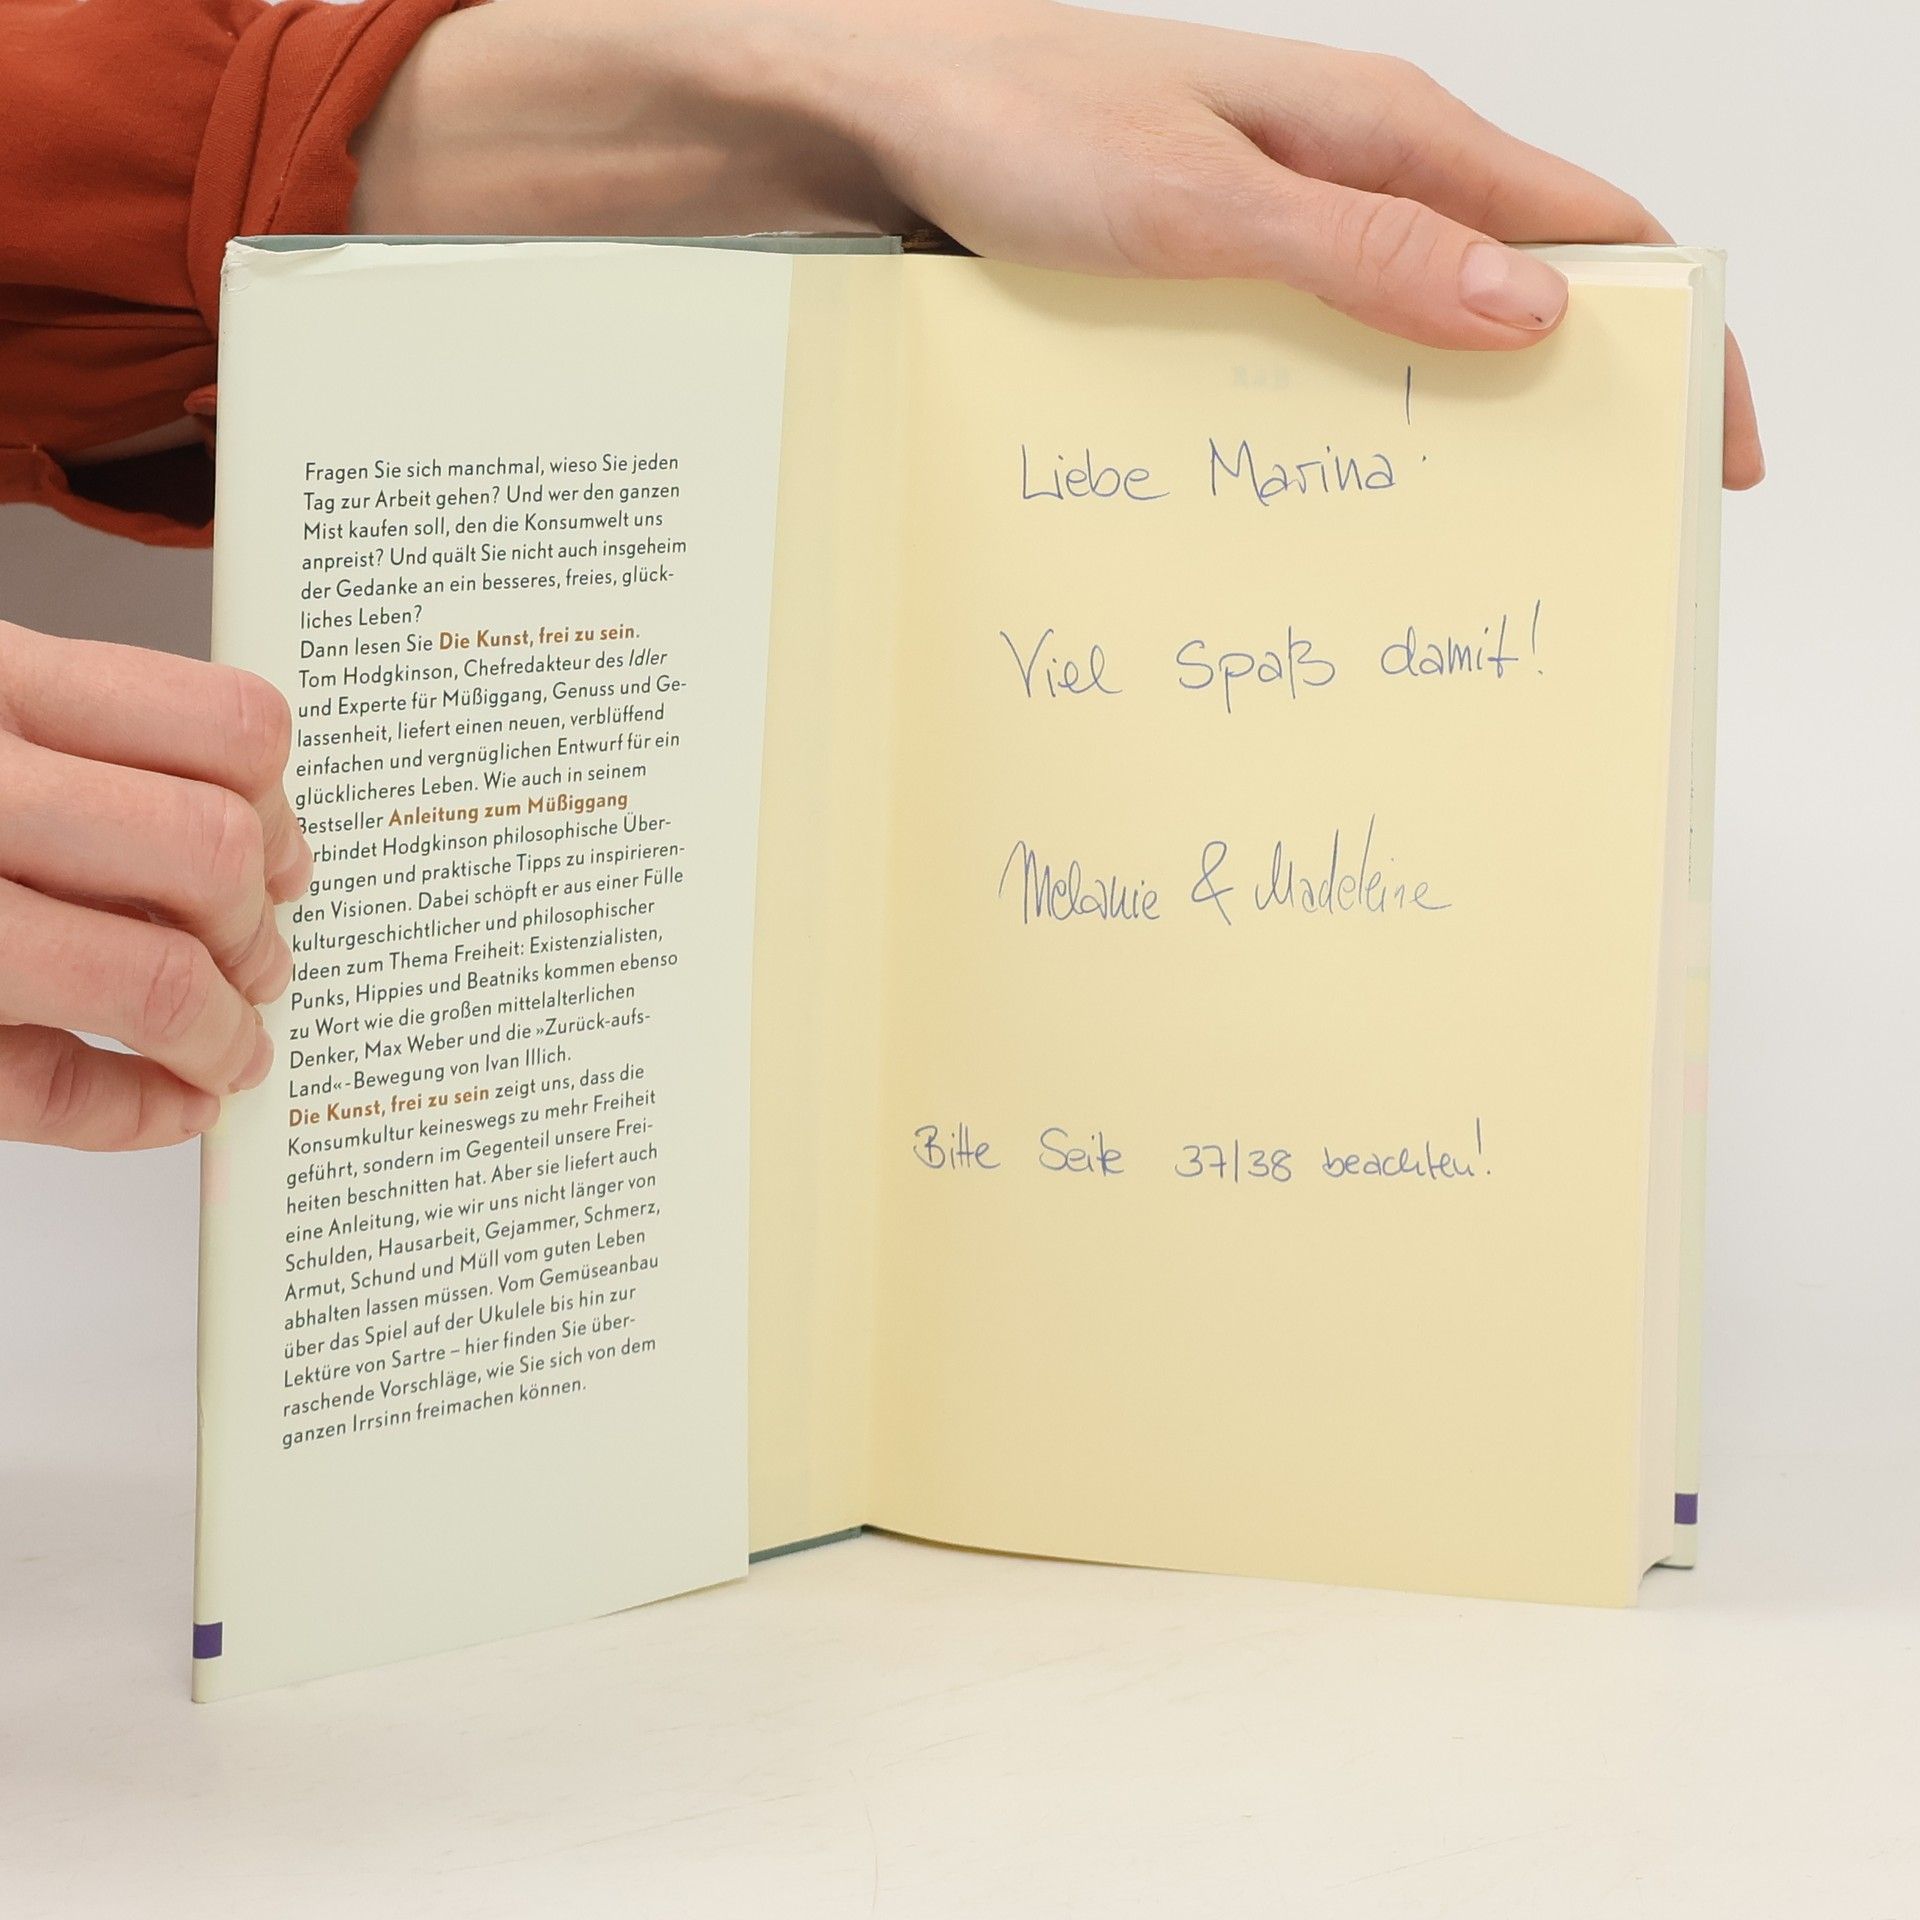 Fragen Sie sich manchmal, wieso Sie jeden
Tag zur Arbeit gehen? Und wer den ganzen
Mist kaufen soll, den die Konsumwelt uns
anpreist? Und quält Sie nicht auch insgeheim
der Gedanke an ein besseres, freies, glück-
liches Leben?
Dann lesen Sie Die Kunst, frei zu sein.
Tom Hodgkinson, Chefredakteur des Idler
und Experte für Müßiggang, Genuss und Ge-
lassenheit, liefert einen neuen, verblüffend
einfachen und vergnüglichen Entwurf für ein
glücklicheres Leben. Wie auch in seinem
Bestseller Anleitung zum Müßiggang
rbindet Hodgkinson philosophische Über-
gungen und praktische Tipps zu inspirieren-
den Visionen. Dabei schöpft er aus einer Fülle
kulturgeschichtlicher und philosophischer
Ideen zum Thema Freiheit: Existenzialisten,
Punks, Hippies und Beatniks kommen ebenso
zu Wort wie die großen mittelalterlichen
Denker, Max Weber und die »Zurück-aufs-
Land«-Bewegung von Ivan Illich.
Die Kunst, frei zu sein zeigt uns, dass die
Konsumkultur keineswegs zu mehr Freiheit
geführt, sondern im Gegenteil unsere Frei-
heiten beschnitten hat. Aber sie liefert auch
eine Anleitung, wie wir uns nicht länger von
Schulden, Hausarbeit, Gejammer, Schmerz,
Armut, Schund und Müll vom guten Leben
abhalten lassen müssen. Vom Gemüseanbau
über das Spiel auf der Ukulele bis hin zur
Lektüre von Sartre – hier finden Sie über-
raschende Vorschläge, wie Sie sich von dem
ganzen Irrsinn freimachen können.
Liebe Marina!
Viel Spaß damit!
Melanie & Madeleine
Bitte Seite 37/38 beachten!